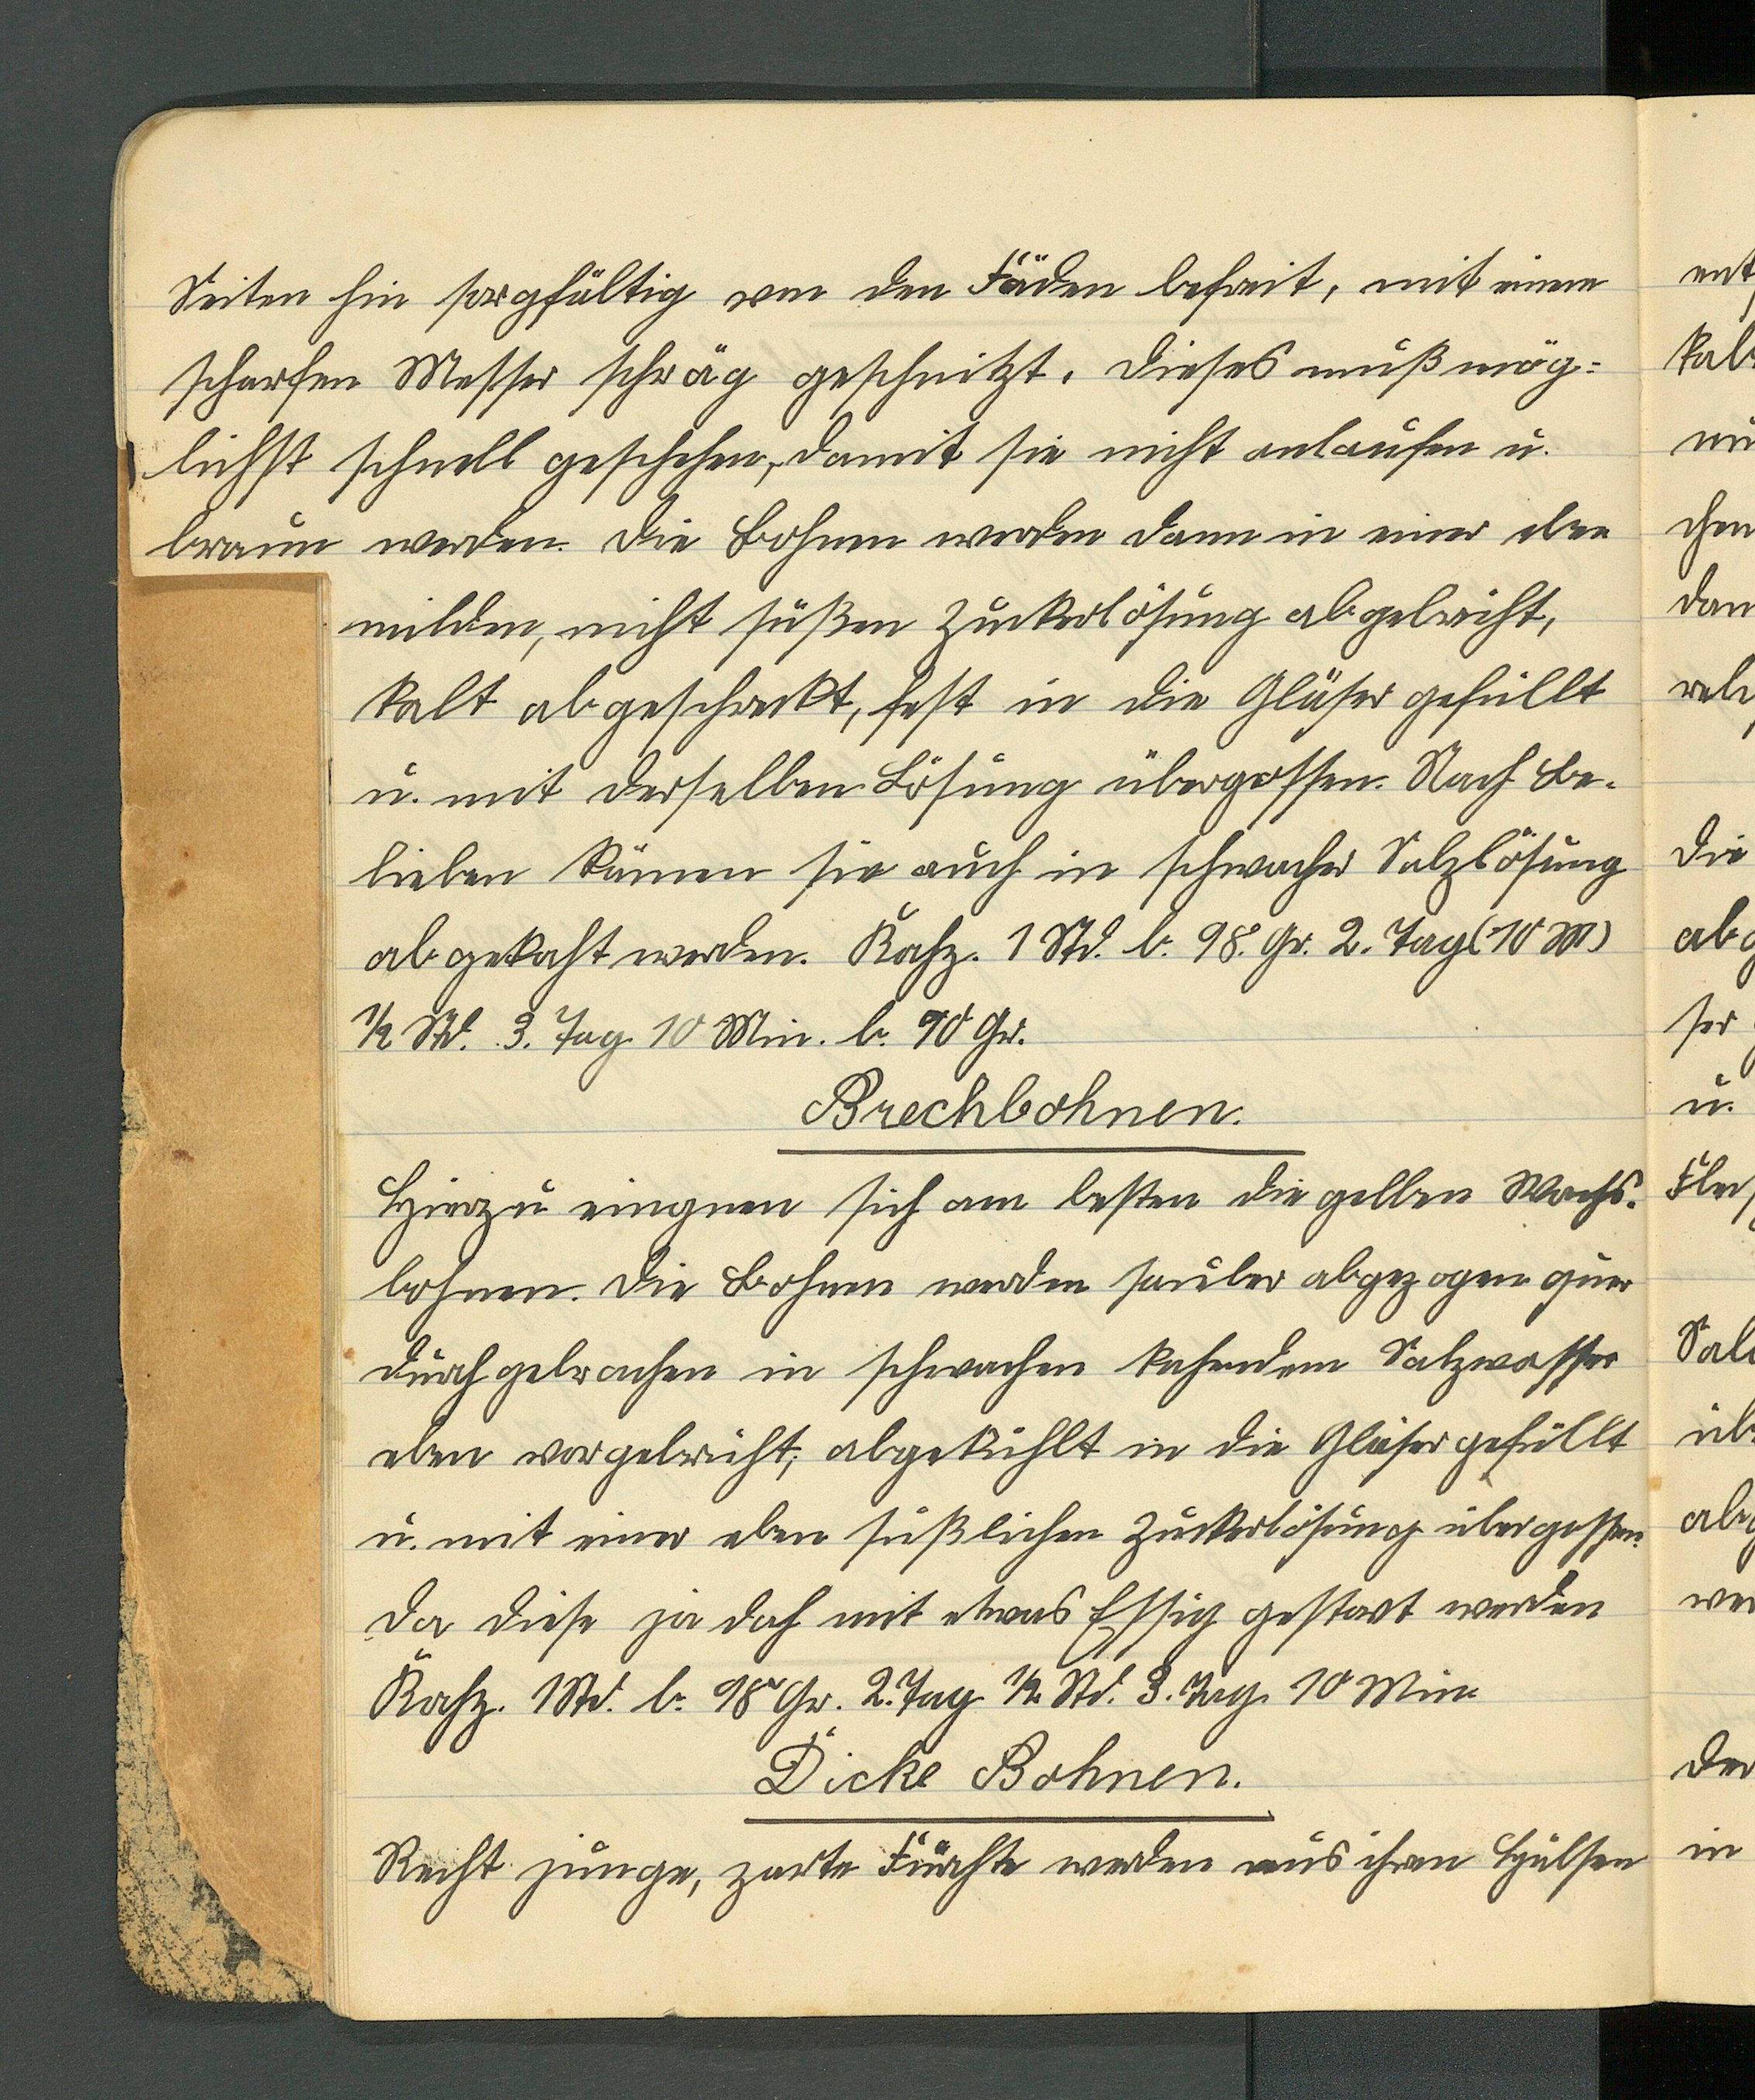 Seiten hin sorgfältig von den Fäden befreit, mit einem
scharfen Messer schräg geschnitzt. Dieses muß mög=
lichst schnell geschehen, damit sie nicht anlaufen u.
braun werden. Die Bohnen werden dann in einer eben
milden, nicht süßen Zuckerlösung abgebrüht,
kalt abgeschreckt, fest in die Gläser gefüllt
u. mit derselben Lösung übergossen. Nach Be-
lieben können sie auch in schwacher Salzlösung
abgekocht werden. Kochz. 1 Std. b. 98° Gr. 2. Tag (10 M)
1/2 Std. 3. Tag 10 Min. b. 90 Gr.
Brechbohnen.
Hierzu eingnen sich am besten die gelben Wachs-
bohnen. Die Bohnen werden sauber abgezogen quer
durchgebrochen in schwachen kochendem Salzwasser
eben vorgebrüht, abgekühlt in die Gläser gefüllt
u. mit einer eben süßlichen Zuckerlösung übergossen.
Da diese ja doch mit etwas Essig gestovt werden
Kochz. 1 Std. b. 98° Gr. 2. Tag 1/2 Std. 3. Tag. 10 Min.
Dicke Bohnen.
Recht junge, zarte Früchte werden aus ihren Hülsen